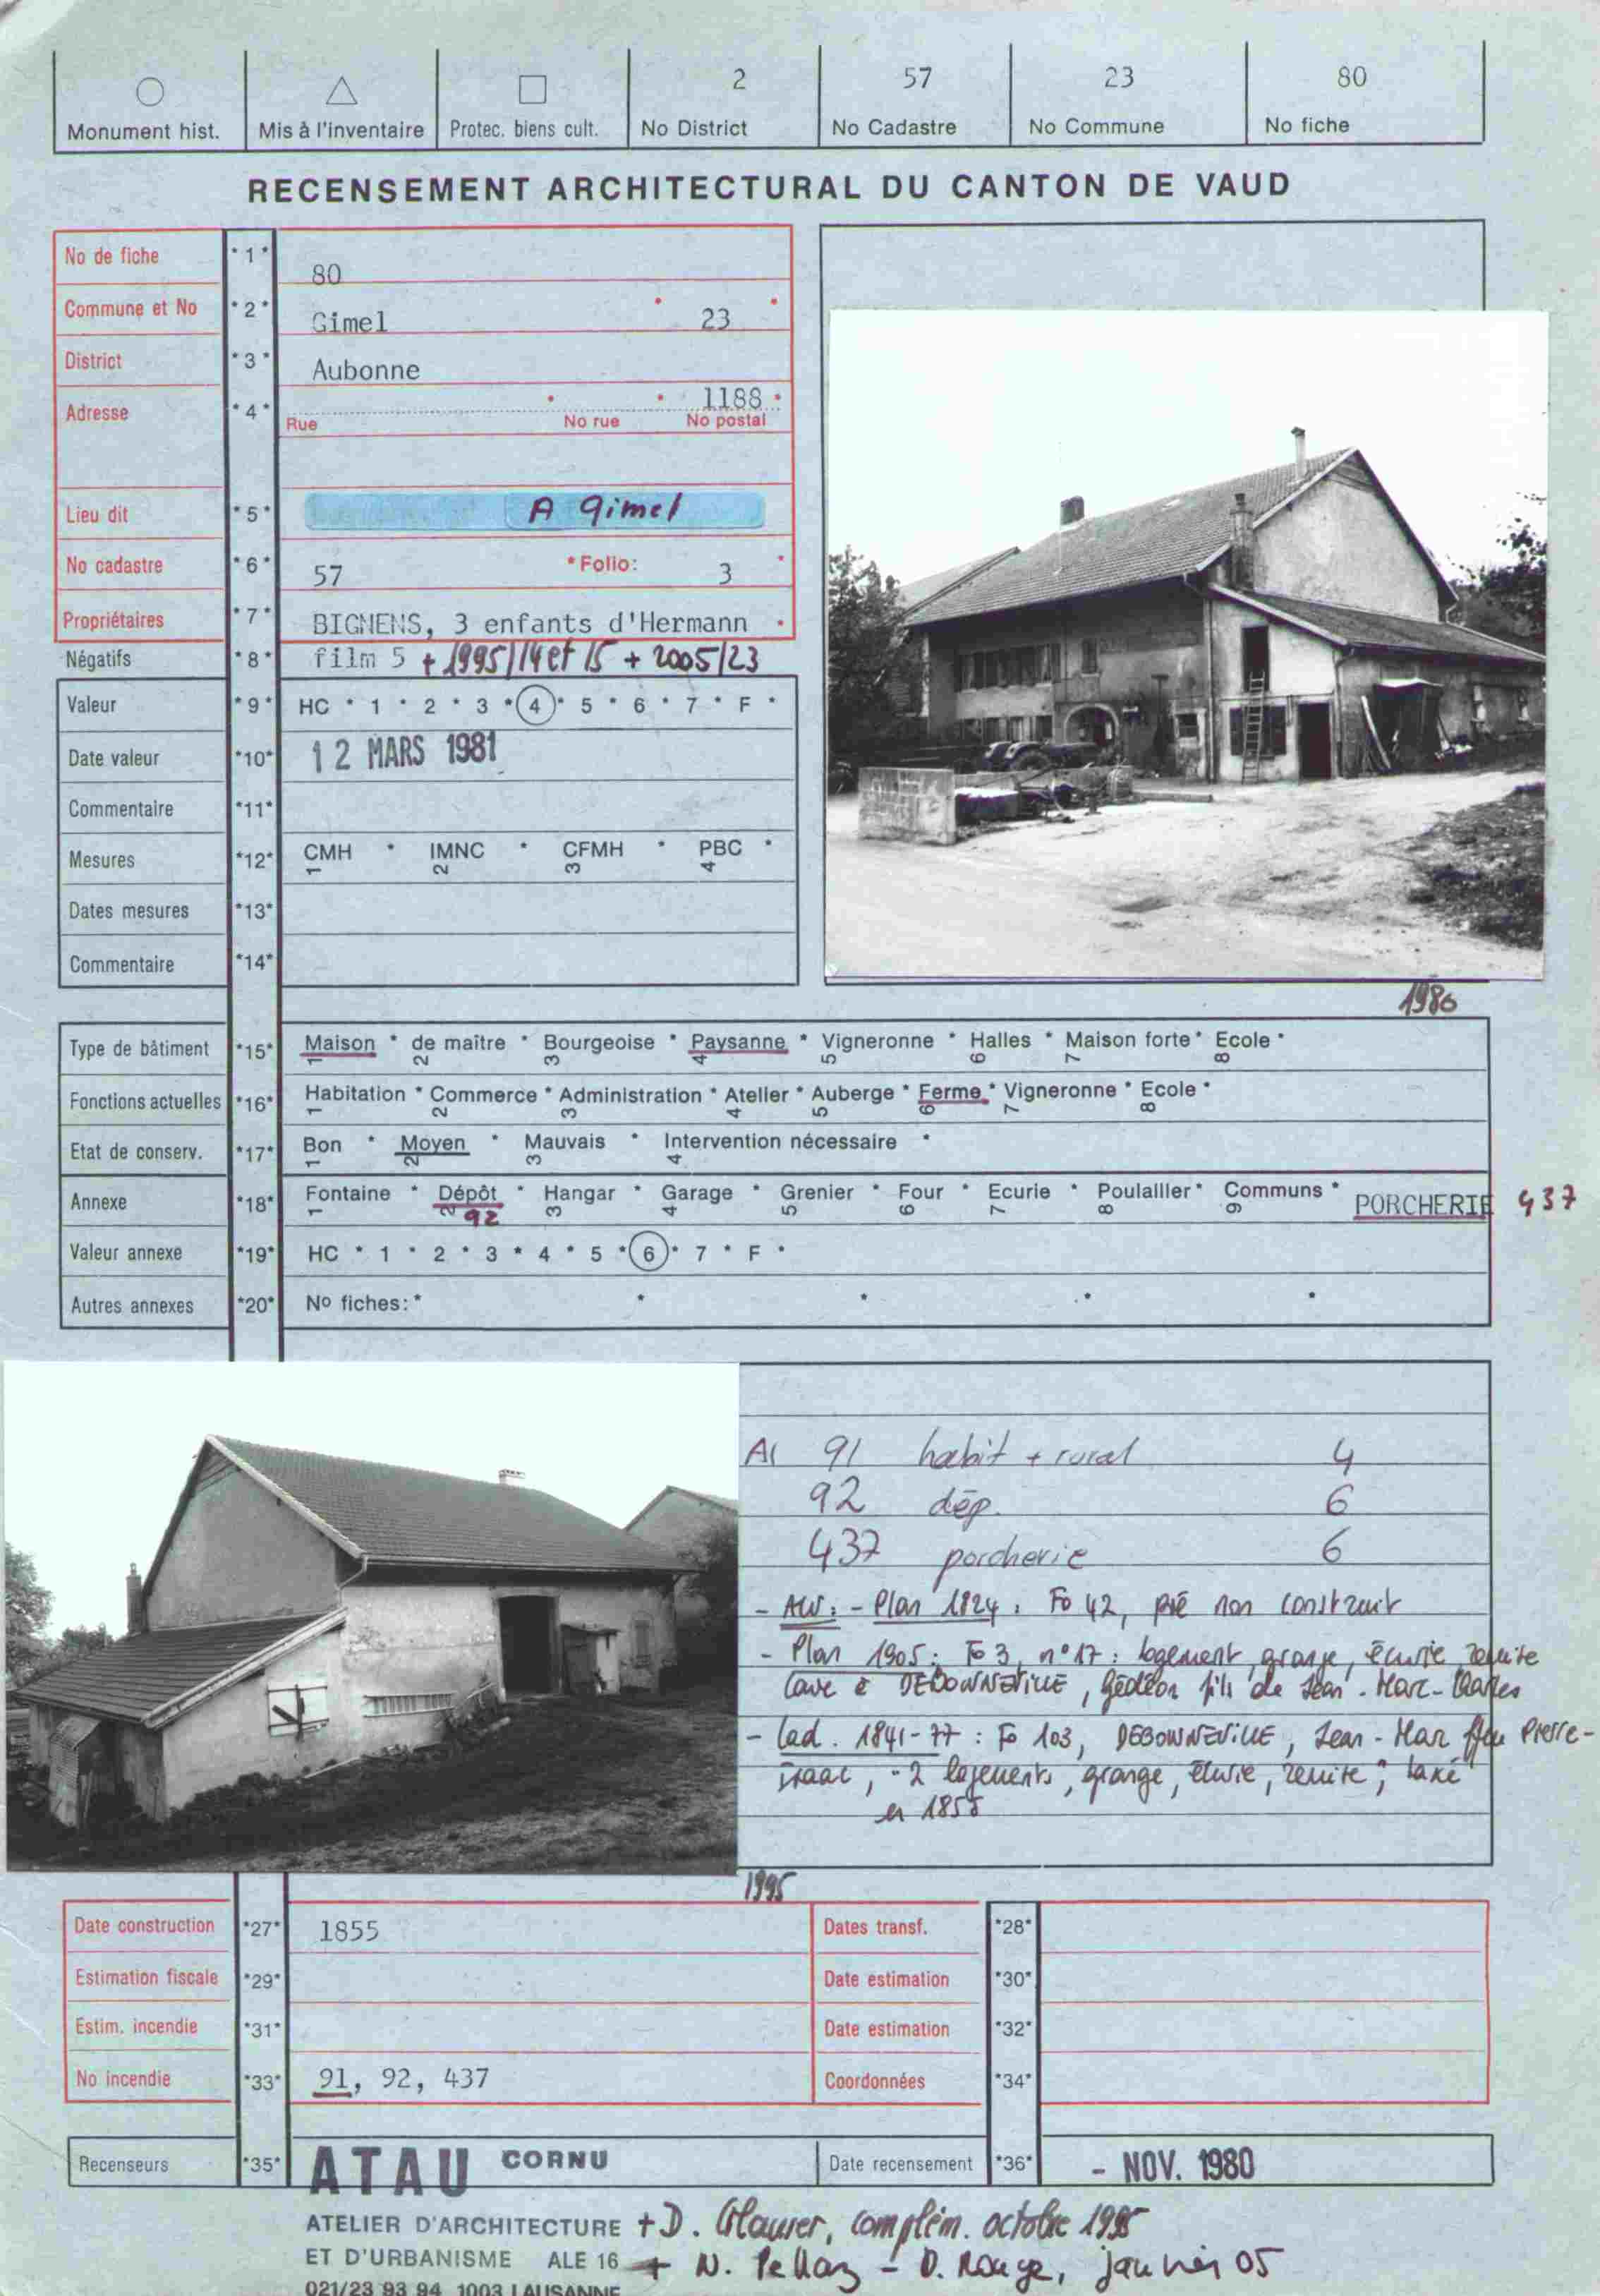 2 57 23 80
Monument hist. Mis à l'inventaire Protec. biens cult. No District No Cadastre No Commune No fiche
RECENSEMENT ARCHITECTURAL DU CANTON DE VAUD
No de fiche *1* 80
Commune et No *2* Gimel 23
District *3* Aubonne
Adresse *4* 1188
Rue No rue No postal
Lieu dit *5* A Gimel
No cadastre *6* 57 *Folio: 3
Propriétaires *7* BIGNENS, 3 enfants d'Hermann
Négatifs *8* film 5 + 1995/14 et 15 + 2005/23
Valeur *9* HC * 1 * 2 * 3 * 4 * 5 * 6 * 7 * F *
Date valeur *10* 12 MARS 1981
Commentaire *11*
Mesures *12* CMH * IMNC * CFMH * PBC *
1 2 3 4
Dates mesures *13*
Commentaire *14*
1980
Type de bâtiment *15* Maison * de maître * Bourgeoise * Paysanne * Vigneronne * Halles * Maison forte * Ecole *
1 2 3 4 5 6 7 8
Fonctions actuelles *16* Habitation * Commerce * Administration * Atelier * Auberge * Ferme * Vigneronne * Ecole *
1 2 3 4 5 6 7 8
Etat de conserv. *17* Bon * Moyen * Mauvais * Intervention nécessaire *
1 2 3 4
Annexe *18* Fontaine * Dépôt * Hangar * Garage * Grenier * Four * Ecurie * Poulailler * Communs * PORCHERIE 437
1 2 92 3 4 5 6 7 8 9
Valeur annexe *19* HC * 1 * 2 * 3 * 4 * 5 * 6 * 7 * F *
Autres annexes *20* No fiches: * * * * *
AI 91 habit + rural 4
92 dép. 6
437 porcherie 6
- ACV : - Plan 1824 : Fo 42, pré non construit
- Plan 1905 : Fo 3, n° 17 : logement, grange, écurie remise
cave à DEBONNEVILLE, Gédéon fils de Jean-Marc-Charles
- Cad. 1841-77 : Fo 103, DEBONNEVILLE, Jean-Marc ffeu Pierre-
Isaac, "2 logements, grange, écurie, remise", taxé
en 1855
1995
Date construction *27* 1855 Dates transf. *28*
Estimation fiscale *29* Date estimation *30*
Estim. incendie *31* Date estimation *32*
No incendie *33* 91, 92, 437 Coordonnées *34*
Recenseurs *35* ATAU CORNU Date recensement *36* - NOV. 1980
ATELIER D'ARCHITECTURE + D. Glauser, complém. octobre 1995
ET D'URBANISME ALE 16 + N. Pellaz - D. Rouge, janvier 05
021/23 93 94 1003 LAUSANNE